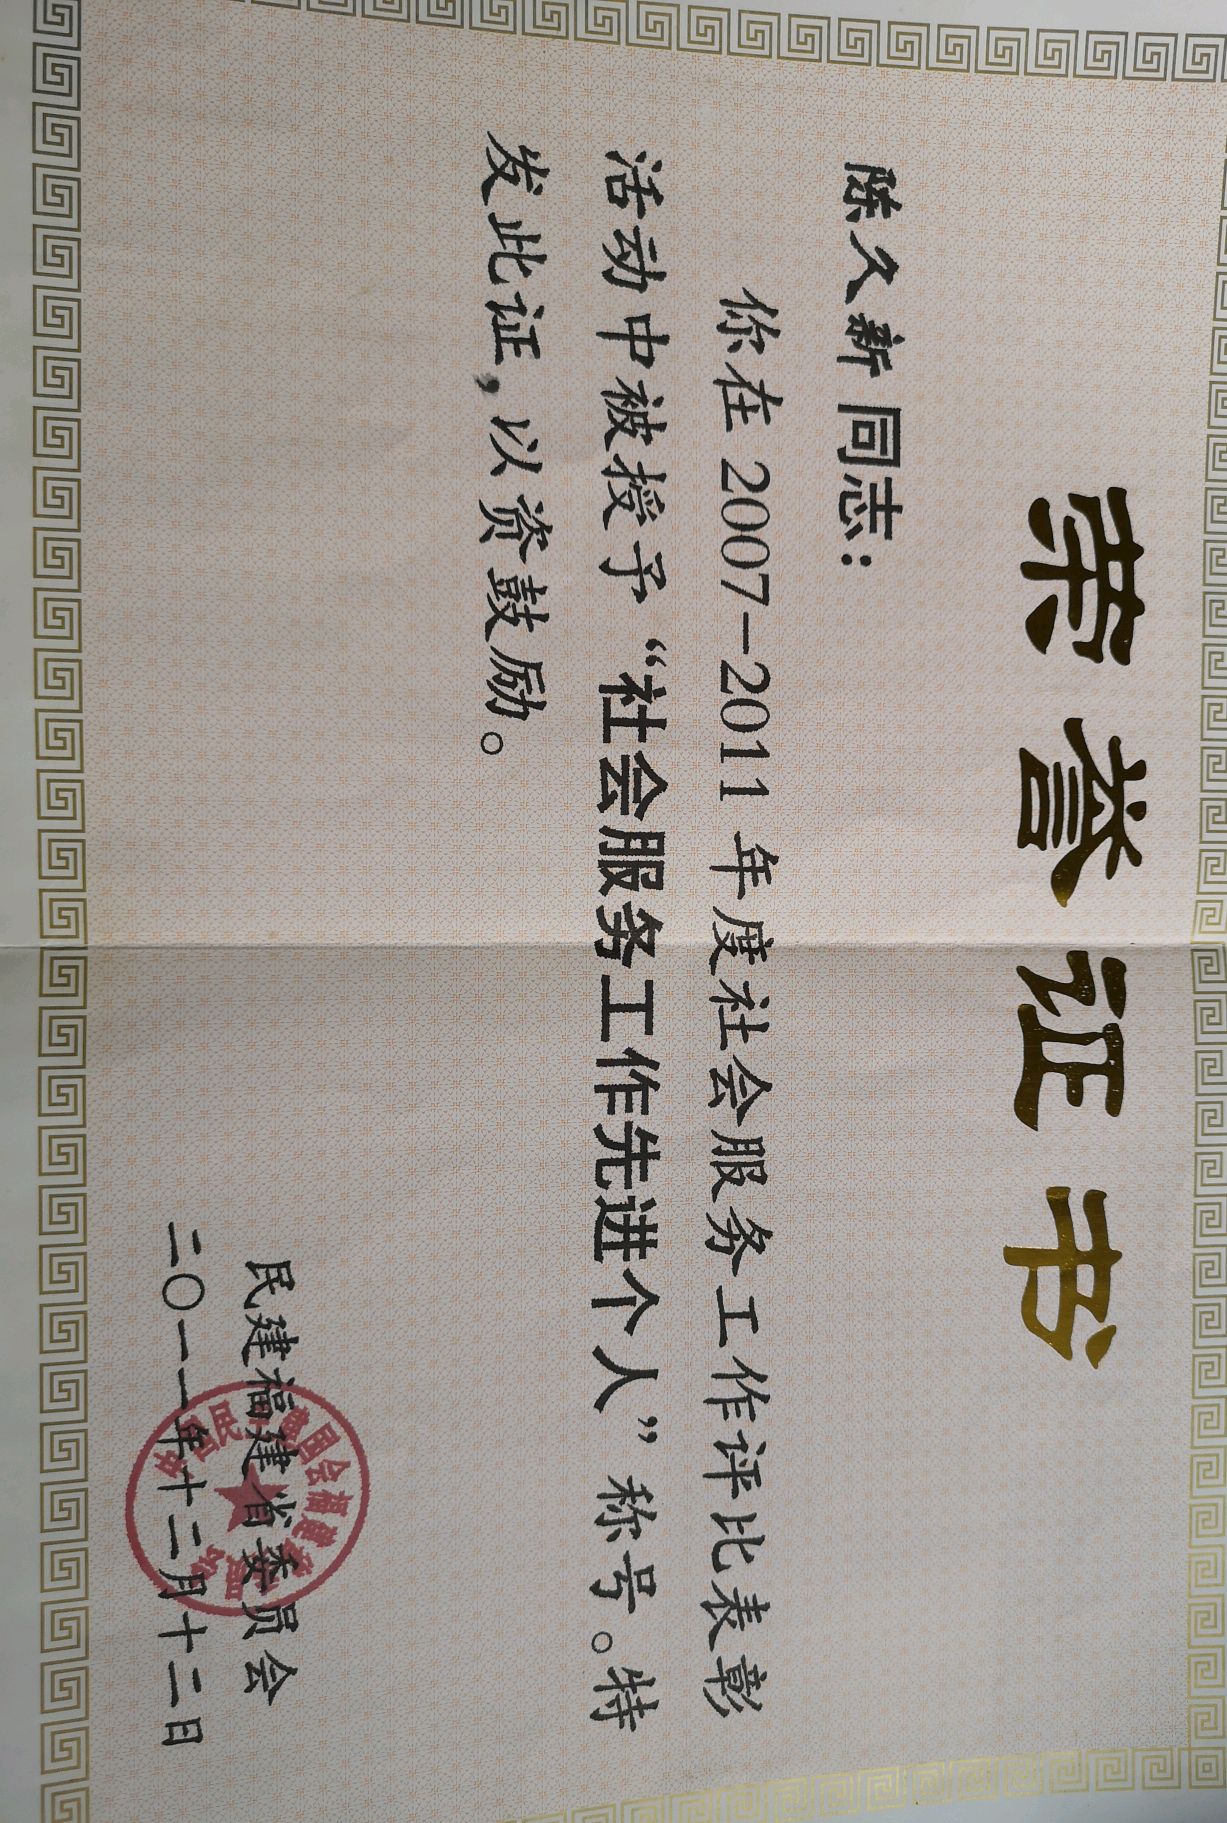 荣誉证书
陈久新同志：
你在2007—2011年度社会服务工作评比表彰
活动中被授予“社会服务工作先进个人”称号。特
发此证，以资鼓励。
民建福建省委员会
二〇一一年十二月十二日